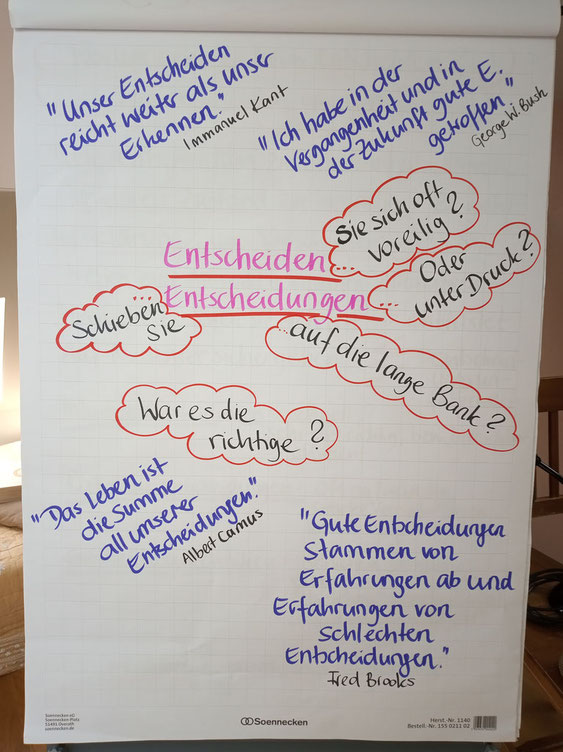 "Unser Entscheiden
reicht weiter als unser
Erkennen."
Immanuel Kant
"Ich habe in der
Vergangenheit und in
der Zukunft gute E.
getroffen"
George W. Bush
Entscheiden
... Sie sich oft
voreilig?
Entscheidungen
... Oder
unter Druck?
Schieben ...
Sie
... auf die lange Bank?
War es die
richtige ?
"Das Leben ist
die Summe
all unserer
Entscheidungen."
Albert Camus
"Gute Entscheidungen
stammen von
Erfahrungen ab und
Erfahrungen von
schlechten
Entscheidungen."
Fred Brooks
Soennecken eG
Soennecken-Platz
51491 Overath
soennecken.de
Soennecken
Herst.-Nr. 1140
Bestell.-Nr. 155 0211 02